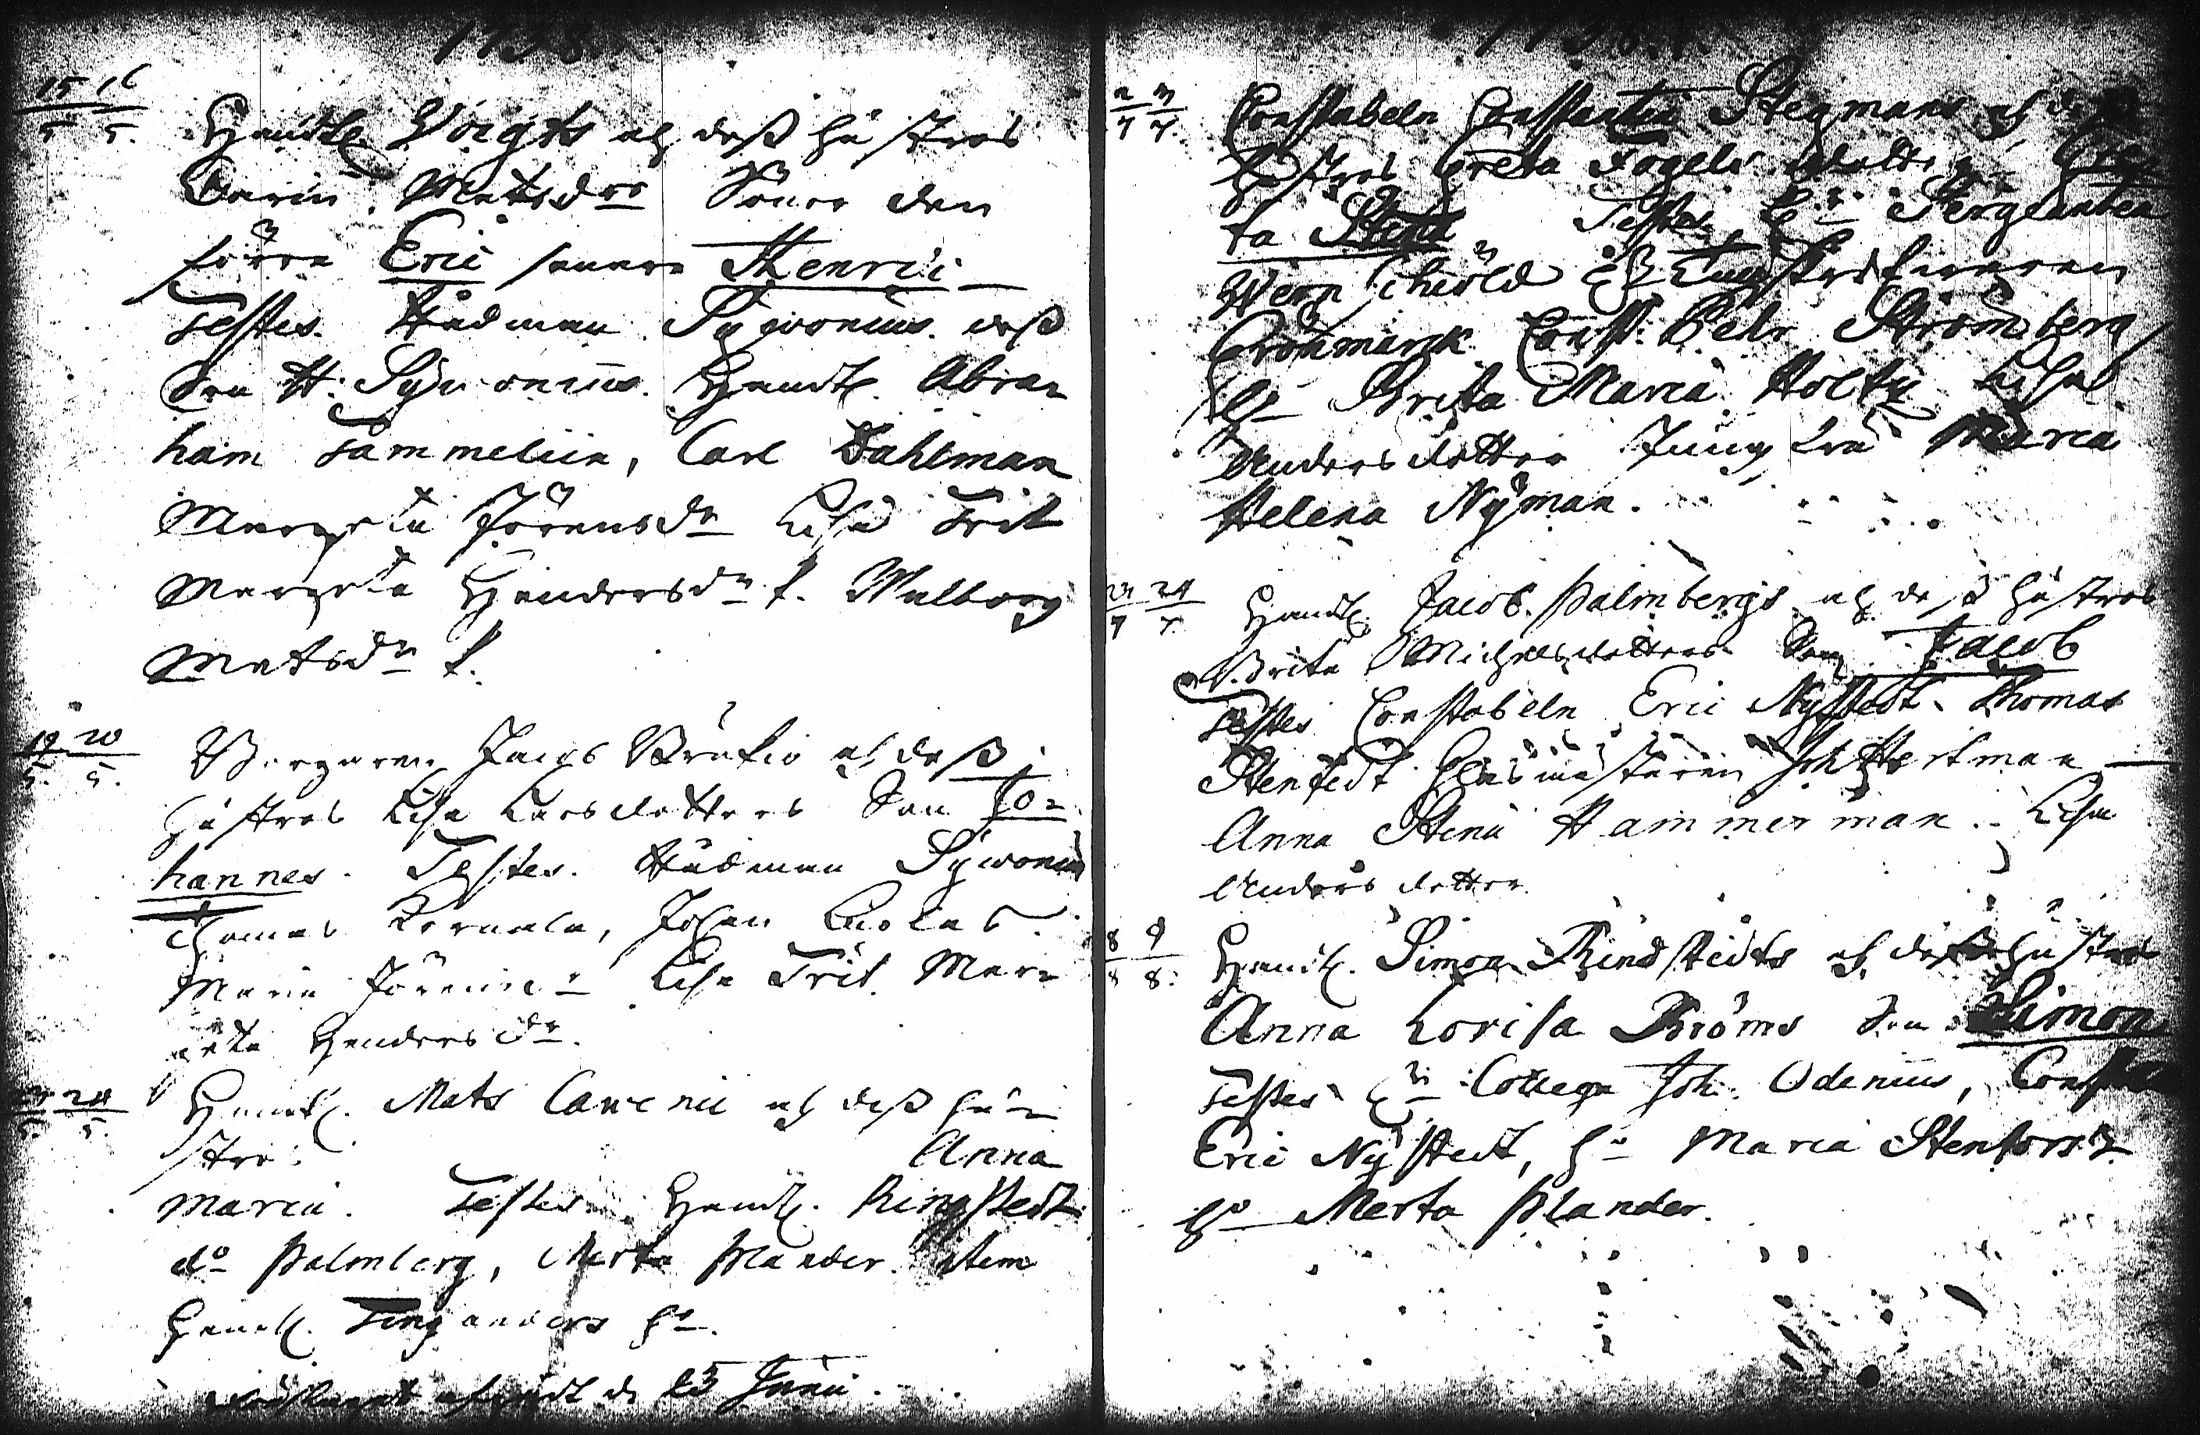 1738
15/5 16/5. Handtl. Voigts och dess hustrus
Carin Matsdrs Söner den
förre Eric senare Henric
Testes. Rådman Sywonius. dess
Son H. Sywonius. Handtl. Abra-
ham Tammelin, Carl Dahlman
Margeta Jöransdr Lisa Trit
Margeta Hendersdr h. Walborg
Matsdr h.
19/5. 20/5. Borgaren Jacobs och dess
hustrus Lisa Larsdotters Son Jo-
hannes. Testes. Rådman Sywonius
Thomas Johan
Maria Lisa Trit. Mar-
geta Hendersdr.
24/5. Handtl. Mats och dess hu-
stru Anna
Maria. Testes Handtl. Ringstedt
do Palmberg, Merta Plander. item
Handtl. hu.
d. 25 Junii.
1738.
2/7 3/7. Constabeln Constantin Stegmans och dess
hustrus Greta Fogels dotter Gre-
ta Stina Testes Hr Sergianten
Wern
Grönmarck Const. Pehr Strömberg
hu Brita Maria Holtz Lisa
Andersdotter Jungfru Maria
Helena Nyman.
24/7. Handtl. Jacob Palmbergs och dess hustrus
Brita Michelsdotters Son Jacob
Testes Constabeln Eric Nystedt. Thomas
Stenstedt Glasmästaren Joh Hertman
Anna Stina Hammerman. Lisa
Andersdotter.
8/8 9/8. Handtl. Simon Rindstedts och dess hustrus
Anna Lovisa Bröms Son Simon
Testes Hr Collega Joh. Odenius, Const
Eric Nystedt, hu Maria Stenfors
hu Merta Plander.